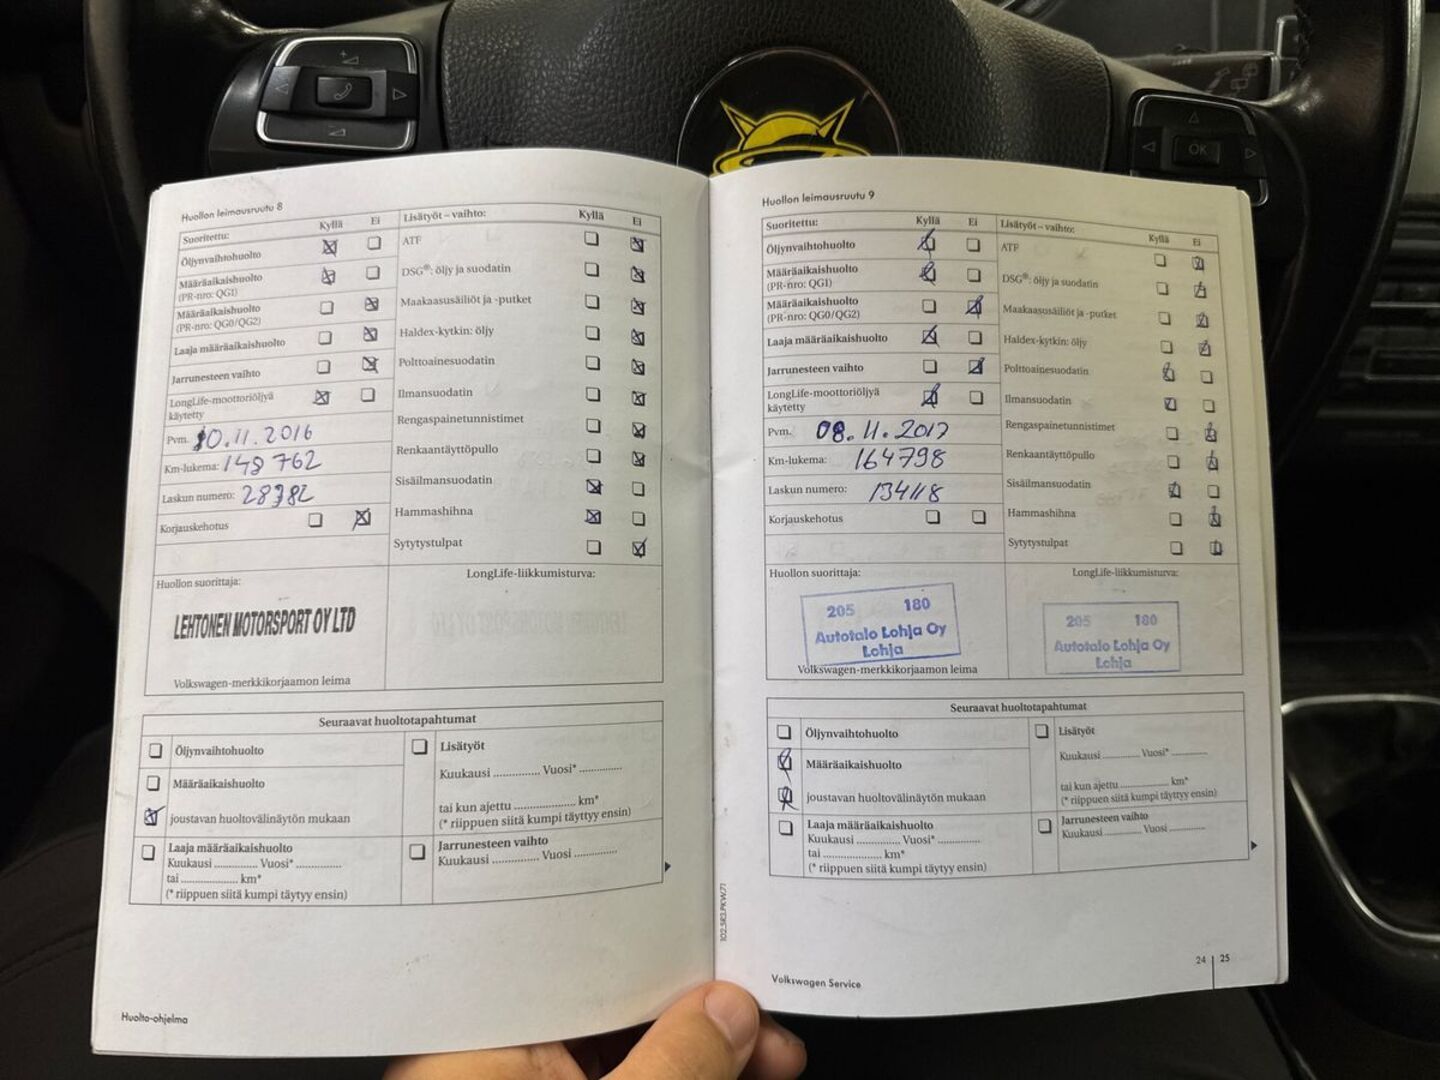 OK
Huollon leimausruutu 8
Suoritettu: Kyllä Ei
Öljynvaihtohuolto
Määräaikaishuolto
(PR-nro: QG1)
Määräaikaishuolto
(PR-nro: QG0/QG2)
Laaja määräaikaishuolto
Jarrunesteen vaihto
LongLife-moottoriöljyä
käytetty
Pvm. 10.11.2016
Km-lukema: 148 762
Laskun numero:
Korjauskehotus
Lisätyöt – vaihto: Kyllä Ei
ATF
DSG®: öljy ja suodatin
Maakaasusäiliöt ja -putket
Haldex-kytkin: öljy
Polttoainesuodatin
Ilmansuodatin
Rengaspainetunnistimet
Renkaantäyttöpullo
Sisäilmansuodatin
Hammashihna
Sytytystulpat
Huollon suorittaja:
LEHTONEN MOTORSPORT OY LTD
Volkswagen-merkkikorjaamon leima
LongLife-liikkumisturva:
Seuraavat huoltotapahtumat
Öljynvaihtohuolto
Määräaikaishuolto
joustavan huoltovälinäytön mukaan
Laaja määräaikaishuolto
Kuukausi .............. Vuosi* ..............
tai .................... km*
(* riippuen siitä kumpi täytyy ensin)
Lisätyöt
Kuukausi .............. Vuosi* ..............
tai kun ajettu .................... km*
(* riippuen siitä kumpi täyttyy ensin)
Jarrunesteen vaihto
Kuukausi .............. Vuosi ..............
Huolto-ohjelma
Huollon leimausruutu 9
Suoritettu: Kyllä Ei
Öljynvaihtohuolto
Määräaikaishuolto
(PR-nro: QG1)
Määräaikaishuolto
(PR-nro: QG0/QG2)
Laaja määräaikaishuolto
Jarrunesteen vaihto
LongLife-moottoriöljyä
käytetty
Pvm. 08.11.2017
Km-lukema: 164798
Laskun numero: 134118
Korjauskehotus
Lisätyöt – vaihto: Kyllä Ei
ATF
DSG®: öljy ja suodatin
Maakaasusäiliöt ja -putket
Haldex-kytkin: öljy
Polttoainesuodatin
Ilmansuodatin
Rengaspainetunnistimet
Renkaantäyttöpullo
Sisäilmansuodatin
Hammashihna
Sytytystulpat
Huollon suorittaja:
205 180
Autotalo Lohja Oy
Lohja
Volkswagen-merkkikorjaamon leima
LongLife-liikkumisturva:
205 180
Autotalo Lohja Oy
Lohja
Seuraavat huoltotapahtumat
Öljynvaihtohuolto
Määräaikaishuolto
joustavan huoltovälinäytön mukaan
Laaja määräaikaishuolto
Kuukausi .............. Vuosi* ..............
tai .................... km*
(* riippuen siitä kumpi täytyy ensin)
Lisätyöt
Kuukausi .............. Vuosi* ..............
tai kun ajettu .................... km*
(* riippuen siitä kumpi täyttyy ensin)
Jarrunesteen vaihto
Kuukausi .............. Vuosi ..............
102.5R3.PKW.71
Volkswagen Service
24 25